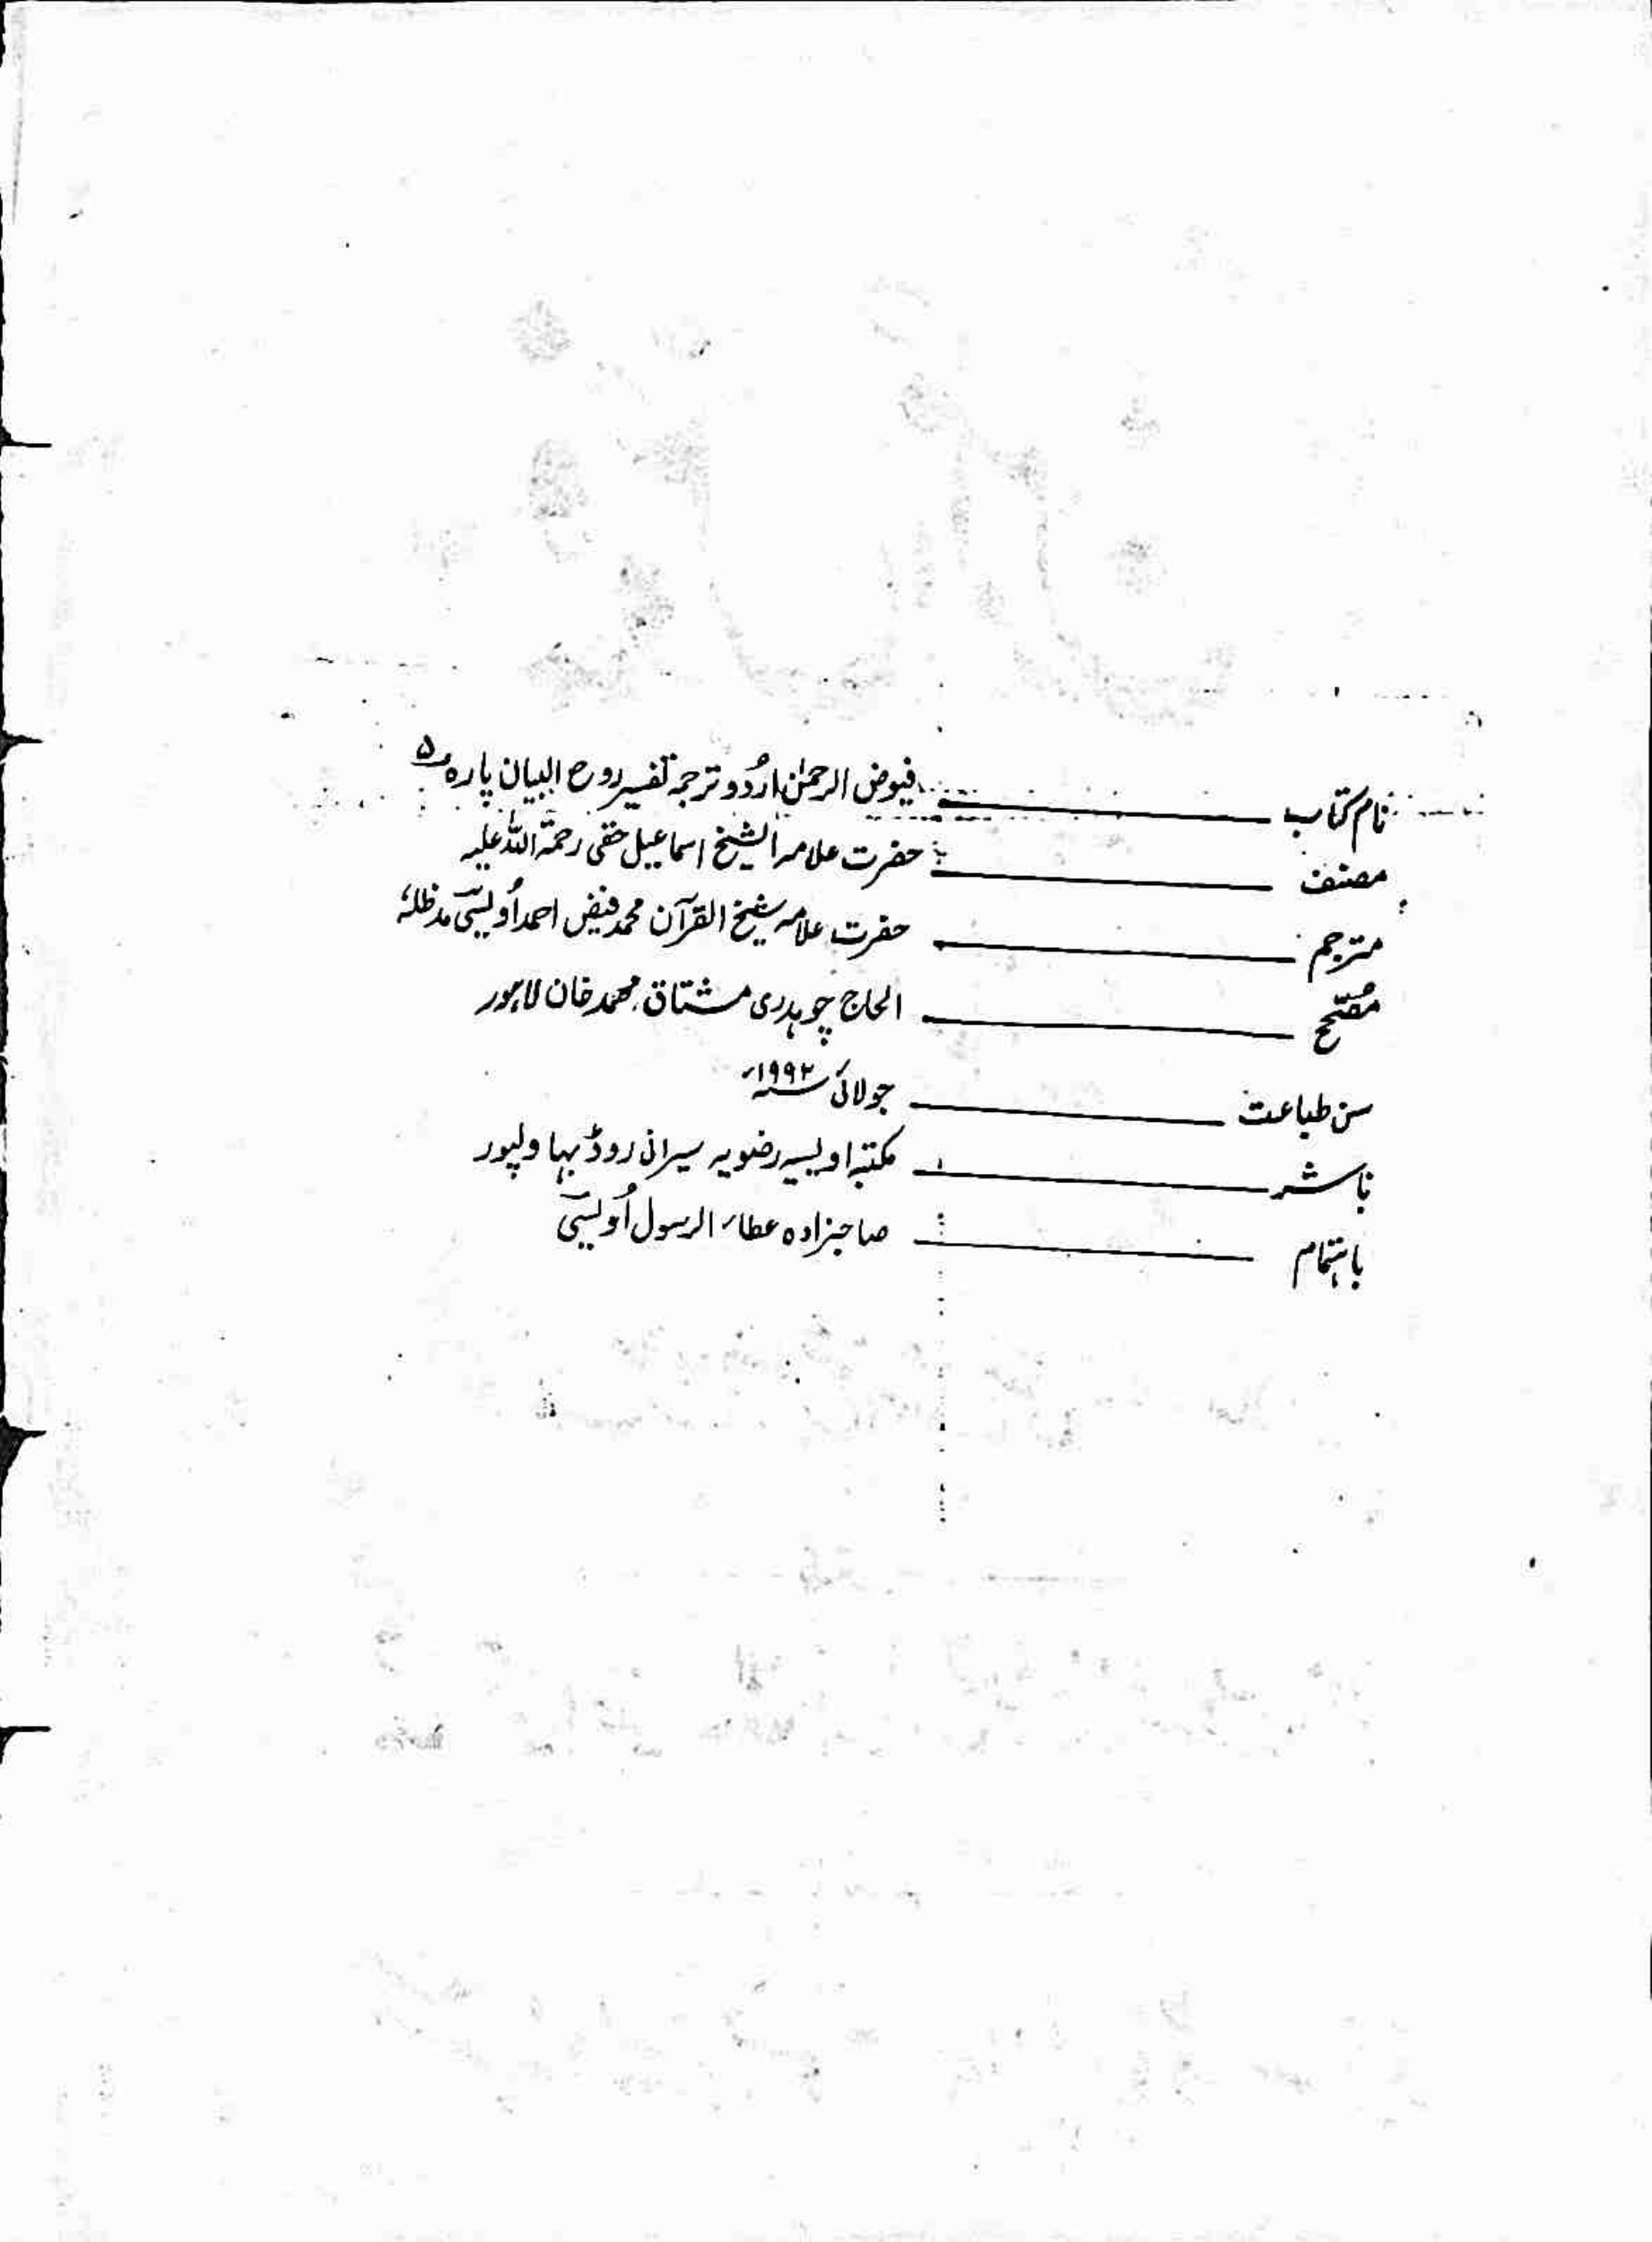 نام کتاب ـــــــ فیوض الرحمٰن اردُو ترجمہ تفسیر روح البیان پارہ ۵
مصنف ـــــــ حضرت علامہ الشیخ اسماعیل حقی رحمۃ اللہ علیہ
مترجم ـــــــ حضرت علامہ شیخ القرآن محمد فیض احمد اُویسی مدظلہٗ
مُصَحِّح ـــــــ الحاج چوہدری مشتاق محمد خان لاہور
سن طباعت ـــــــ جولائی ۱۹۹۲ء
ناشر ـــــــ مکتبہ اویسیہ رضویہ سیرانی روڈ بہاولپور
باہتمام ـــــــ صاحبزادہ عطاء الرسول اُویسی